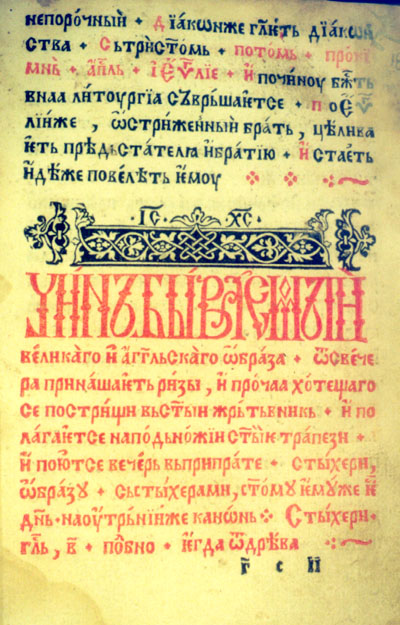 непоро́чный • Дїа́конже гл҃еть дїа́коњ
ства • Сьтрї́стомь • пото́мь • проки́
мнь • а҆пⷭ҇ль • і҆ є҆ѵⷢ҇лїе • и҆ по чи́ноу бж҃тъ
внаа лїтоургїа съврьша́ѥтсе • по є҆ѵⷢ҇
лїи́нже , ѿстри́же́нный бра́ть , цѣ́лива
ѥть прѣ́дьста́телꙗ и҆бра́тїю • и҆ ста́еть
и҆дѣ́же повелѣть ѥ҆моу
І҃С Х҃С
Чи́нъ быва́ємый
вели́каго и҆ а҆гг҃льскаго ѡ҆́браза • ѿ ве́че
ра прина́шаѥть ри́зы , и҆ про́чаа хоте́щаго
се постри́щи вьст҃ы́и жрь́тьвникь • и҆ по
лага́ѥтсе наподьно́жїи ст҃ы́ѥ тра́пези •
и҆ поют́се вече́рь вьприпра́те • сты́хери,
ѡ҆́бразоу • сьсты́херами, ст҃о́му ѥ҆му́же ѥ҆
дн҃ь • наоу́трьни́нже кано́нь • Сты́хери •
гл҃ь, в҃ • по́бно • ѥ҆гда̀ ѿдрѣ́ва
г҃ с и҃